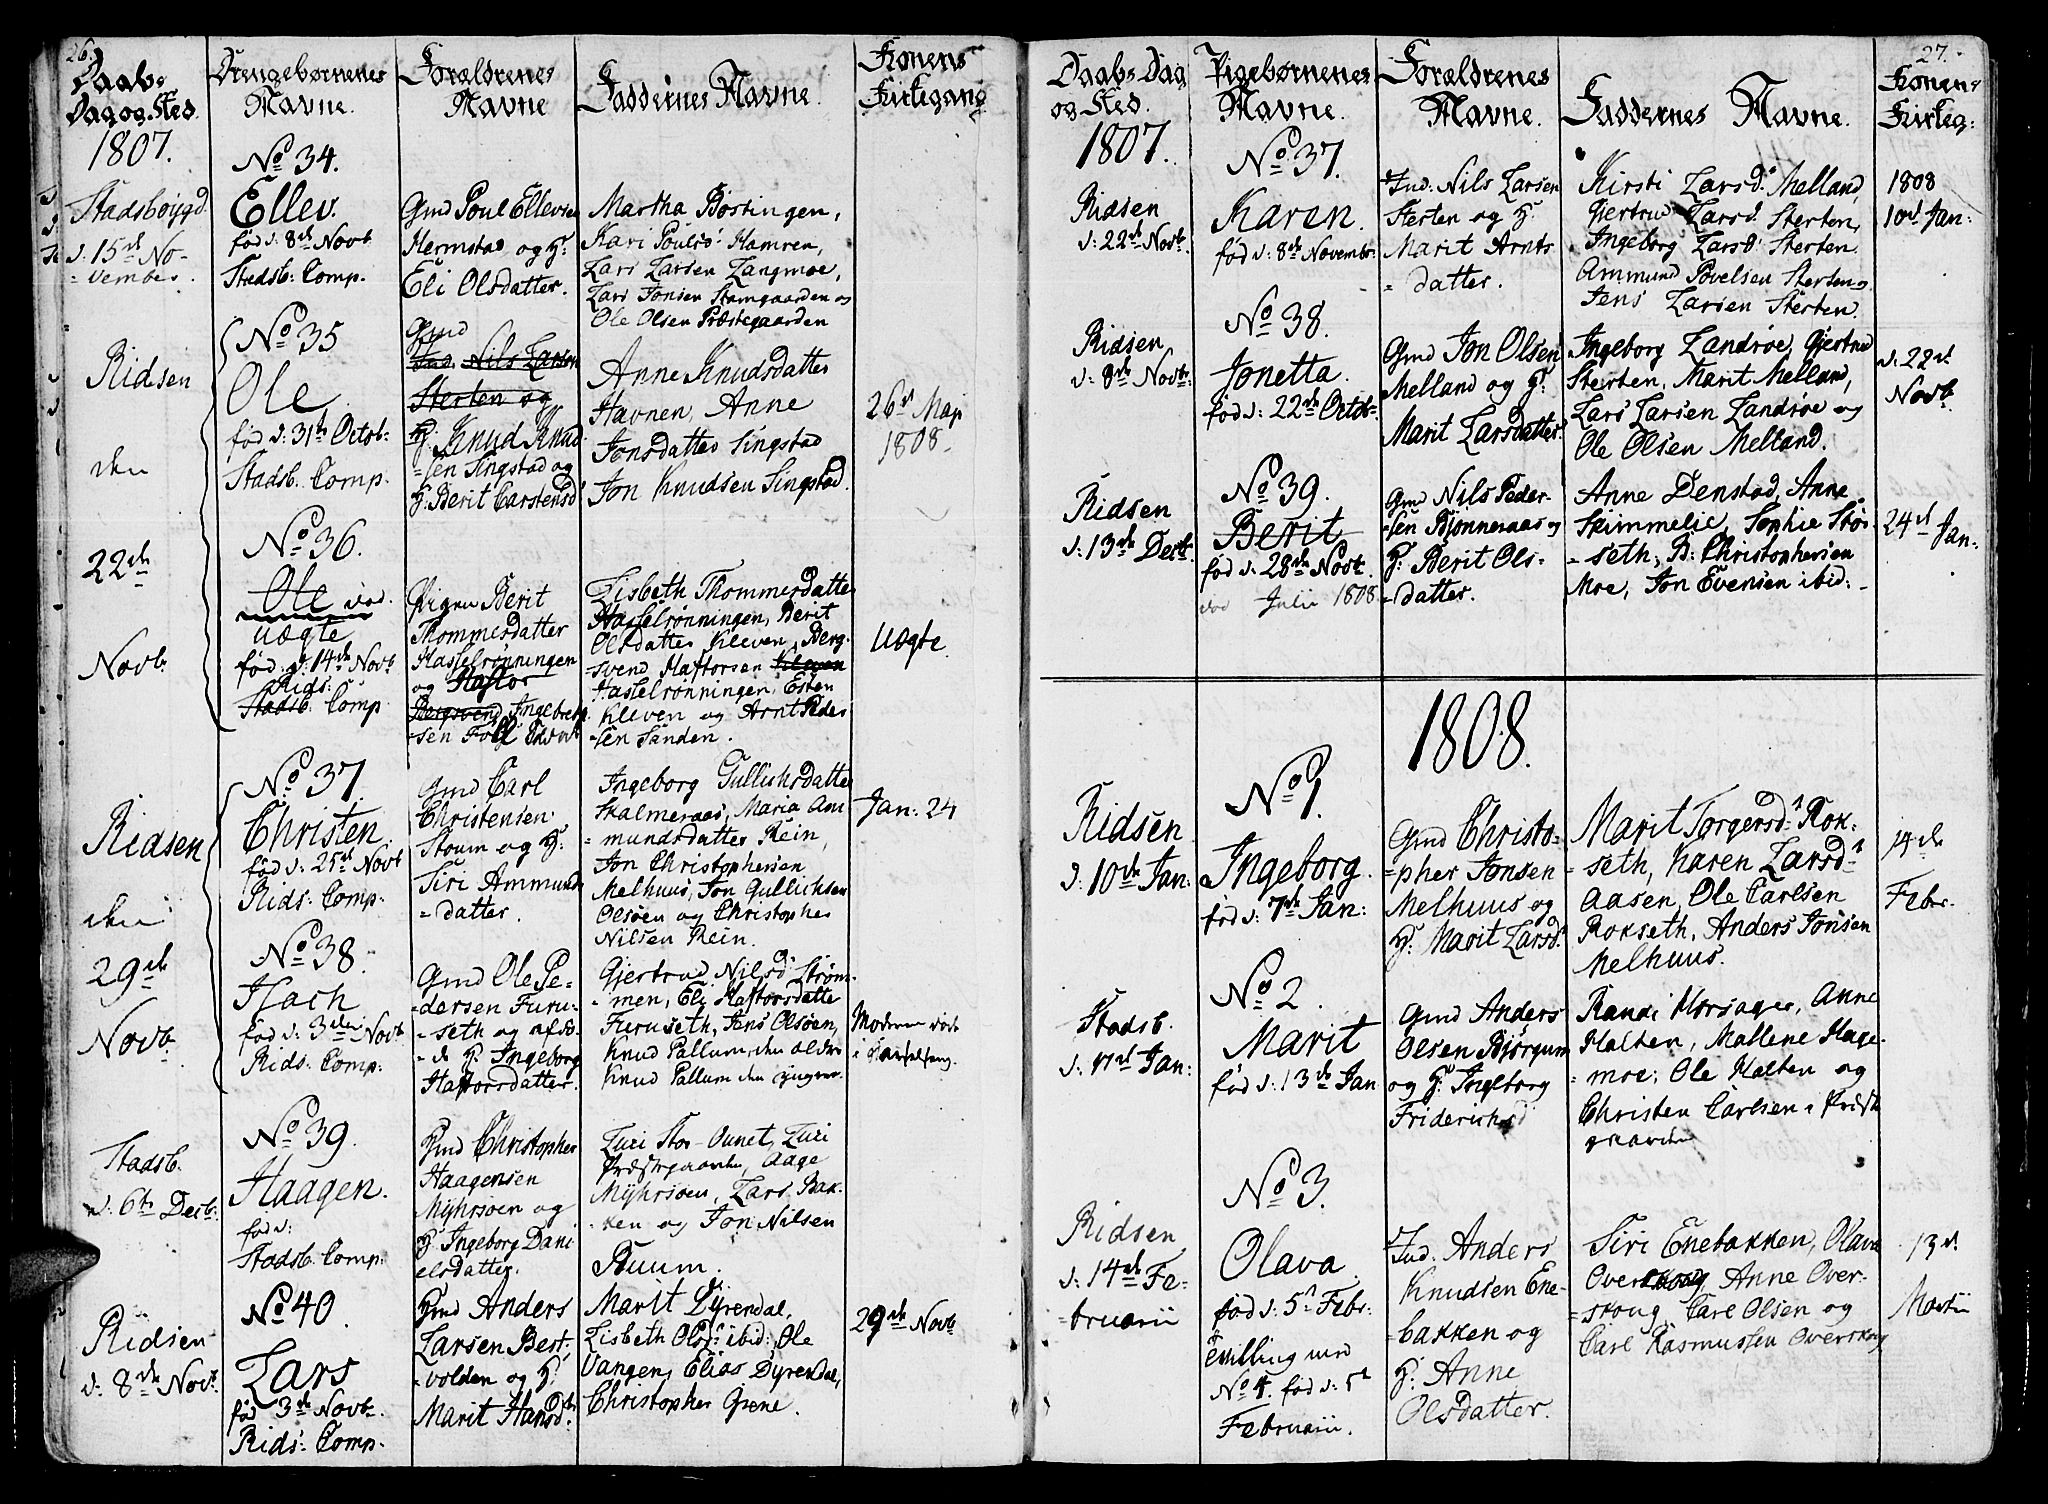 26.
Daab-
Dag og Sted.
1807.
Drengebørnenes
Navne.
Forældrenes
Navne
Faddernes Navne.
Konens
Kirkegang
Stadsbøygd.
d: 15de No-
vember.
No 34.
Ellev.
fød d: 8de Novb.
Stadsb: Comp.
Gmd Poul Ellevsen
Hermstad og H:
Eli Olsdatter.
Martha Bostingen,
Kari Poulsd: Hamren,
Lars Larsen Langmoe,
Lars Jonsen Stamgaarden og
Ole Olsen Præstegaarden
Ridsen
den
22de
Novb:
No 35
Ole
fød d: 31te Octob:
Stadsb. Comp.
Gmd
Ind. Nils Larsen
Sterten og
H: Knud Knud-
sen Singstad og
H: Berit Carstensd
Anne Knudsdatter
Havnen, Anne
Jonsdatter Singstad
Jon Knudsen Singstad.
26de Maj
1808.
No 36.
Ole
uægte
fød d: 14de Novb
Rids:
Stadsb. Comp.
Pigen Berit
Thommesdatter
Hasselrønningen
og Haftor
Bergsvend Ingebret-
sen
Lisbeth Thommesdatter
Hasselrønningen, Berit
Olsdatter Kleven, Berg-
svend Haftorsen Kleven
Hasselrønningen, Esten
Kleven og Arnt Peder
sen Sanden.
Uægte
Ridsen
den
29de
Novb:
No 37.
Christen
fød d: 25de Novb
Rids: Comp:
Gmd Carl
Christensen
Stoum og H:
Siri Ammunds
datter.
Ingeborg Gullichsdatter
Skalmeraas, Maria Am
mundsdatter Rein,
Jon Christophersen
Melhuus, Jon Gullichsen
Olsøen og Christopher
Nilsen Rein.
Jan: 24
No 38.
Hach
fød d: 3die Novb
Rids: Comp:
Gmd Ole Pe-
dersen Furu-
seth og afdø-
de H: Ingeborg
Haftorsdatter.
Gjertrud Nilsd: Strøm-
men, Eli Haftorsdatter
Furuseth, Jens Olsøen,
Knud Pallum den ældre
Knud Pallum den yngre
Moderen døde
i Barselseng.
Stadsb.
d: 6te Decb:
No 39.
Haagen.
fød d:
Stadsb. Comp:
Gmd Christopher
Haagensen
Myhrsøen og
H: Ingeborg Dani
elsdatter.
Luri Stor-Ounet, Luri
Præstegaarden, Aage
Myhrsøen, Lars Bak-
ken og Jon Nilsen
Ridsen
d: 8de Novb:
No 40
Lars
fød 3de Novb.
Rids: Comp.
Gmd Anders
Larsen Best-
volden og H:
Marit Hansd:
Marit Dyrendal,
Lisbeth Olsd: ibid: Ole
Vangen, Elias Dyrendal,
Christopher Grene.
29de Novb
27.
Daabs Dag
og Sted.
1807.
Pigebørnenes
Navne.
Forældrenes
Navne.
Faddernes Navne.
Konens
Kirkeg:
Ridsen
d: 22de Novb.
No 37.
Karen.
fød d: 8de Novembr:
Ind. Nils Larsen
Sterten og H:
Marit Arnts
datter.
Kirsti Larsd: Melland,
Gjertrud Larsd: Sterten,
Ingeborg Larsd: Sterten.
Ammund Povelsen Sterten og
Jens Larsen Sterten.
1808
10de Jan:
Ridsen
d: 8de Novb:
No 38.
Jonetta.
fød d: 22de Octob:
Gmd Jon Olsen
Melland og H:
Marit Larsdatter.
Ingeborg Landrøe, Gjertrud
Sterten, Marit Melland,
Lars Larsen Landrøe og
Ole Olsen Melland.
d: 22de
Novb.
Ridsen
d: 13de Decb:
No 39.
Berit
fød d: 28de Novb.
død Julii 1808
Gmd Nils Peder-
sen Bjønneraas og
H: Berit Ols-
datter.
Anne Denstad, Anne
Skimmelie, Sophie Stø-
seth, B: Christophersen
Moe, Jon Evensen ibid:
24de Jan:
1808.
Ridsen
d: 10de Jan:
No 1.
Ingeborg.
fød d: 7de Jan:
Gmd Christo-
pher Jonsen
Melhuus og
H: Marit Larsd:
Marit Torgersd: Rok-
seth, Karen Larsd:
Aasen, Ole Carlsen
Rokseth, Anders Jonsen
Melhuus.
14de
Febr.
Stadsb.
d: 17de Jan:
No 2.
Marit
fød d: 13de Jan
Gmd Anders
Olsen Bjørgum
og H: Ingeborg
Friderichsd
Randi Horsager, Anne
Halten, Mallene Hage-
moe, Ole Halten og
Christen Carlsen i Præste
gaarden
Ridsen
d: 14de Fe-
bruarii
No 3.
Olava.
fød d: 5te Febr:
Tvilling med
No 4. fød d: 5te
Februarii.
Ind. Anders
Knudsen Ene-
bakken og
H: Anne
Olsdatter.
Siri Enebakken, Olava
Overskoug, Anne Over-
skoug, Carl Olsen og
Carl Rasmussen Overskoug
13de
Martii